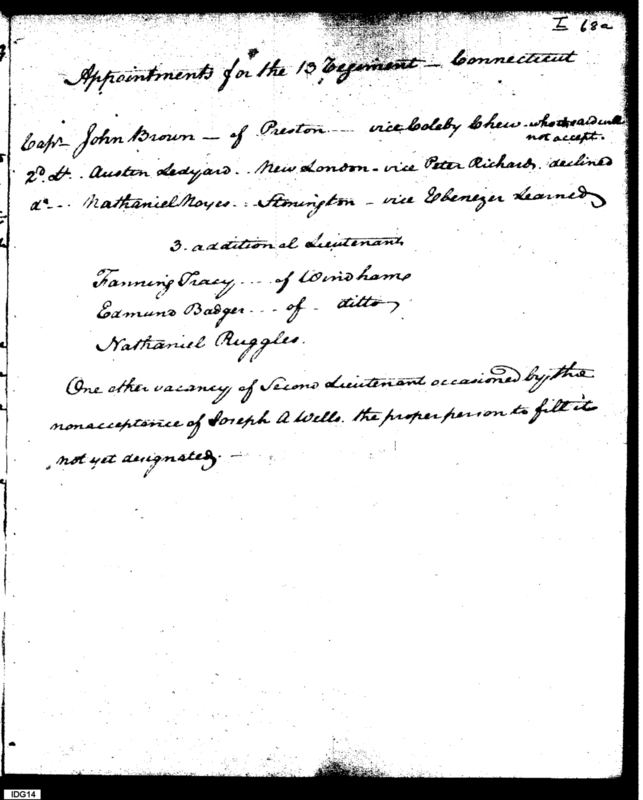 I 68a
Appointments for the 13 Regiment – Connecticut
Capt John Brown – of Preston --- vice Coleby Chew who said will
not accept.
2d Lt. Austin Ledyard .. New London – vice Peter Richards declined
do -- Nathaniel Noyes .. Stonington – vice Ebenezer Learned
3. additional Lieutenants
Fanning Tracy --- of Windham
Edmund Badger --- of - ditto
Nathaniel Ruggles.
One other vacancy of Second Lieutenant occasioned by the
nonacceptance of Joseph A Wells. the proper person to fill it
not yet designated. –
IDG14